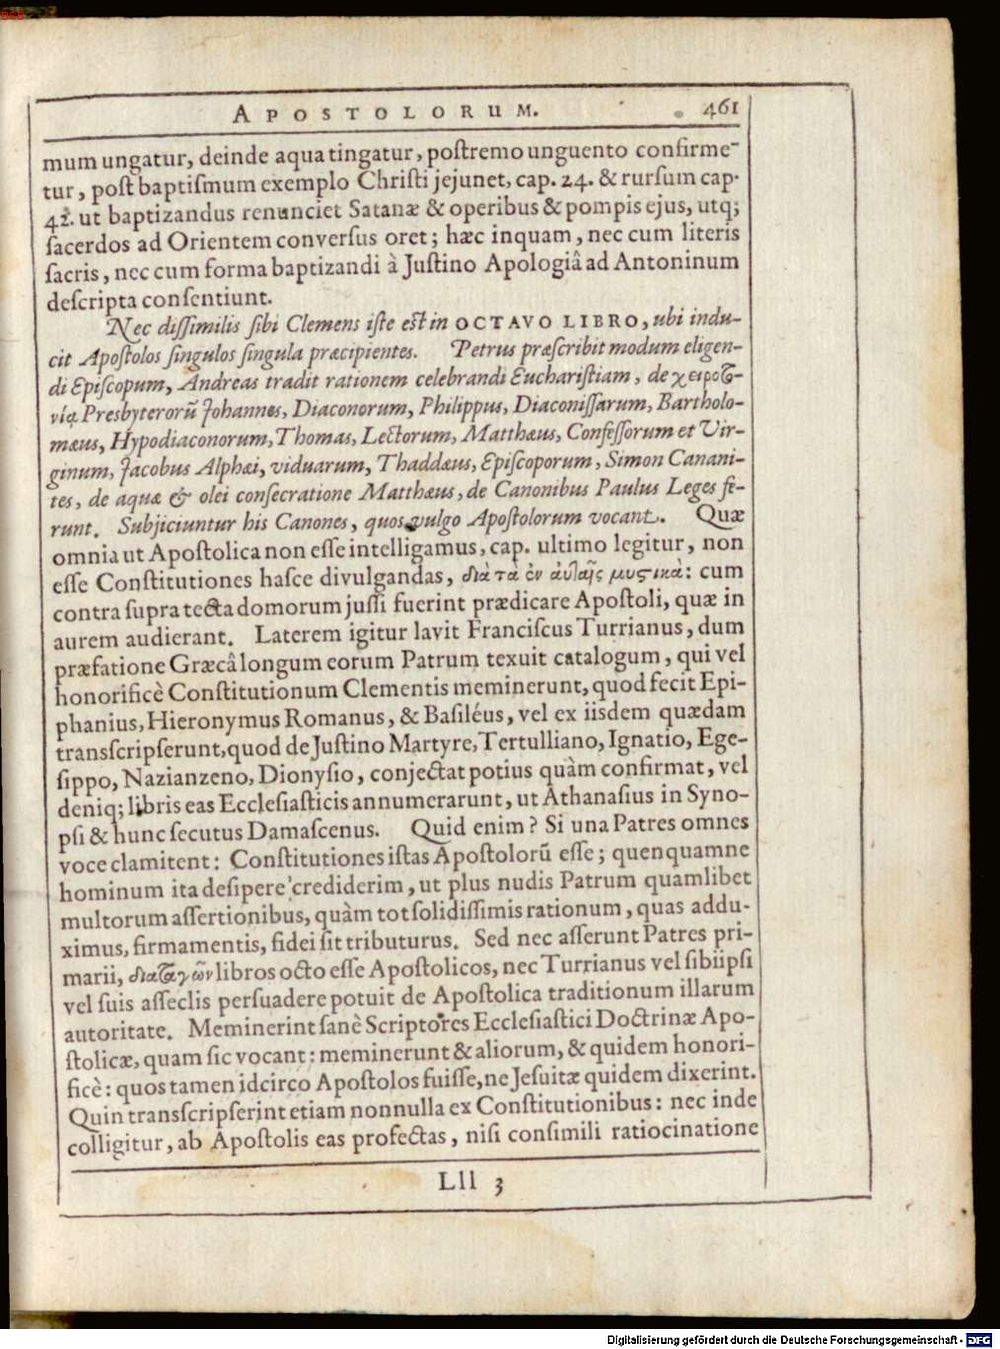 APOSTOLORUM. 461
mum ungatur, deinde aqua tingatur, postremo unguento confirme-
tur, post baptiſmum exemplo Chriſti jejunet, cap. 24. & rurſum cap.
42. ut baptizandus renunciet Satanæ & operibus & pompis ejus, utq;
ſacerdos ad Orientem converſus oret; hæc inquam, nec cum literis
ſacris, nec cum forma baptizandi à Juſtino Apologiâ ad Antoninum
deſcripta conſentiunt.
Nec diſſimilis ſibi Clemens iſte eſt in OCTAVO LIBRO, ubi indu-
cit Apoſtolos ſingulos ſingula præcipientes. Petrus præſcribit modum eligen-
di Epiſcopum, Andreas tradit rationem celebrandi Euchariſtiam, de χειροτο-
νίᾳ Presbyterorũ Johannes, Diaconorum, Philippus, Diaconiſſarum, Bartholo-
mæus, Hypodiaconorum, Thomas, Lectorum, Matthæus, Confeſſorum et Vir-
ginum, Jacobus Alphæi, viduarum, Thaddæus, Epiſcoporum, Simon Canani-
tes, de aquæ & olei conſecratione Matthæus, de Canonibus Paulus Leges fe-
runt. Subjiciuntur his Canones, quos vulgo Apoſtolorum vocant. Quæ
omnia ut Apoſtolica non eſſe intelligamus, cap. ultimo legitur, non
eſſe Conſtitutiones haſce divulgandas, διὰ τὰ ἐν αὐταῖς μυςικὰ: cum
contra ſupra tecta domorum juſſi fuerint prædicare Apoſtoli, quæ in
aurem audierant. Laterem igitur lavit Franciſcus Turrianus, dum
præfatione Græcâ longum eorum Patrum texuit catalogum, qui vel
honorificè Conſtitutionum Clementis meminerunt, quod fecit Epi-
phanius, Hieronymus Romanus, & Baſiléus, vel ex iisdem quædam
transſcripſerunt, quod de Juſtino Martyre, Tertulliano, Ignatio, Ege-
ſippo, Nazianzeno, Dionyſio, conjectat potius quàm confirmat, vel
deniq; libris eas Eccleſiaſticis annumerarunt, ut Athanaſius in Syno-
pſi & hunc ſecutus Damaſcenus. Quid enim? Si una Patres omnes
voce clamitent: Conſtitutiones iſtas Apoſtolorũ eſſe; quenquamne
hominum ita deſipere crediderim, ut plus nudis Patrum quamlibet
multorum aſſertionibus, quàm tot ſolidiſſimis rationum, quas addu-
ximus, firmamentis, fidei ſit tributurus. Sed nec aſſerunt Patres pri-
marii, διαταγῶν libros octo eſſe Apoſtolicos, nec Turrianus vel ſibiipſi
vel ſuis aſſeclis perſuadere potuit de Apoſtolica traditionum illarum
autoritate. Meminerint ſanè Scriptores Eccleſiaſtici Doctrinæ Apo-
ſtolicæ, quam ſic vocant: meminerunt & aliorum, & quidem honori-
ficè: quos tamen idcirco Apoſtolos fuiſſe, ne Jeſuitæ quidem dixerint.
Quin transſcripſerint etiam nonnulla ex Conſtitutionibus: nec inde
colligitur, ab Apoſtolis eas profectas, niſi conſimili ratiocinatione
Lll 3
Digitalisierung gefördert durch die Deutsche Forschungsgemeinschaft - DFG